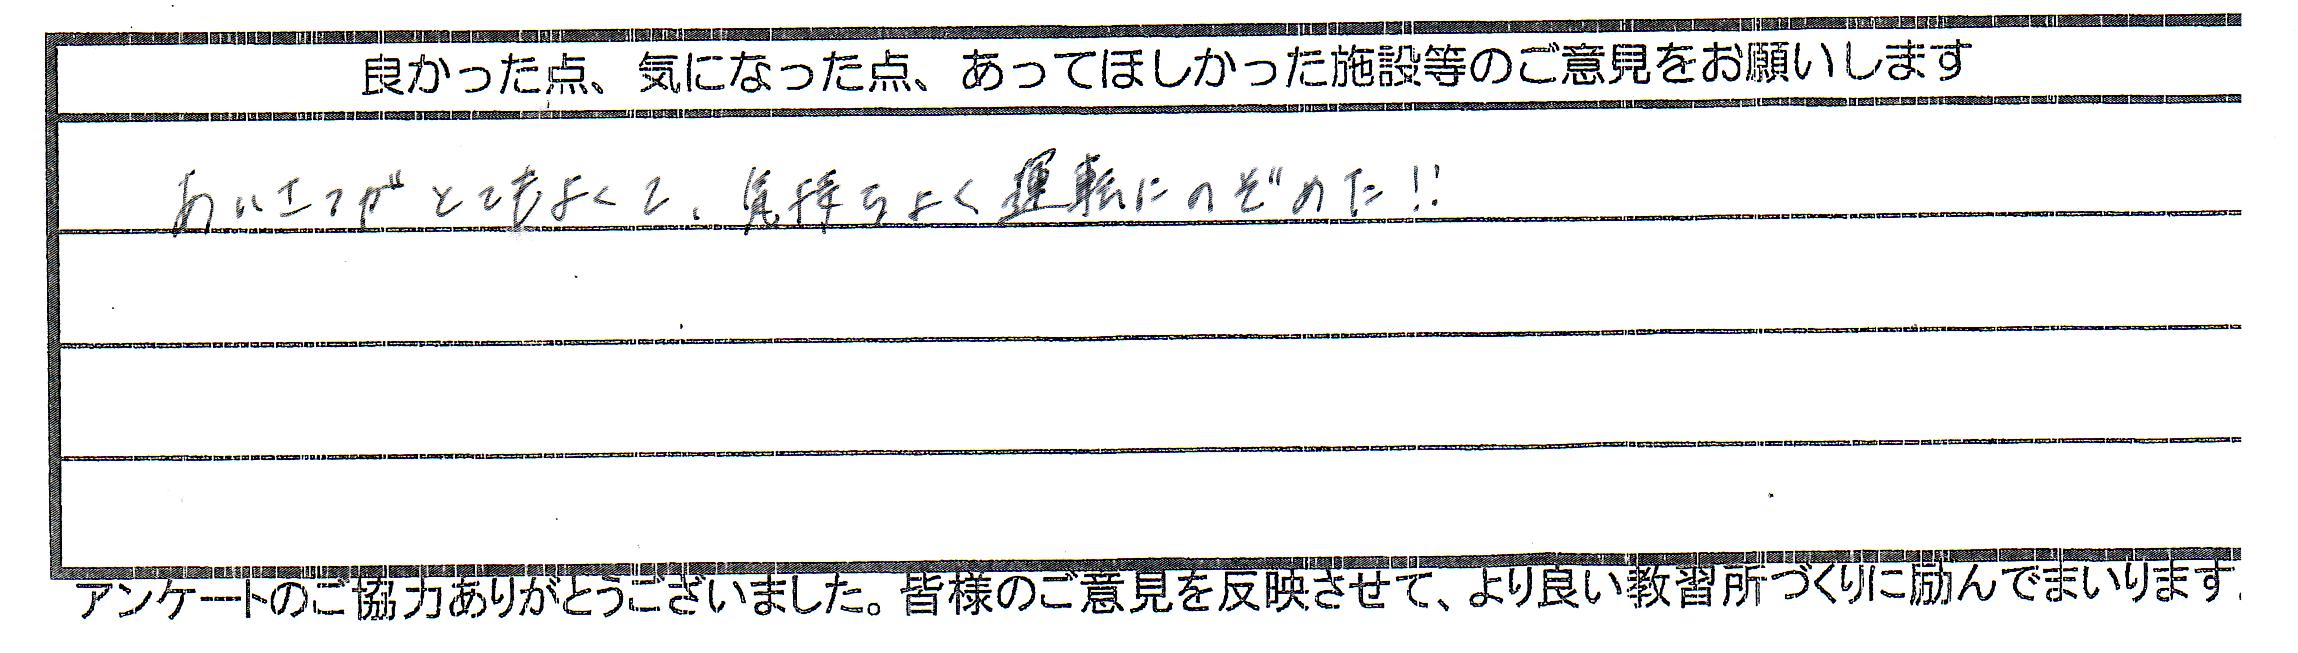 良かった点、気になった点、あってほしかった施設等のご意見をお願いします
あいさつがとてもよくて、気持ちよく運転にのぞめた!!
アンケートのご協力ありがとうございました。皆様のご意見を反映させて、より良い教習所づくりに励んでまいります.